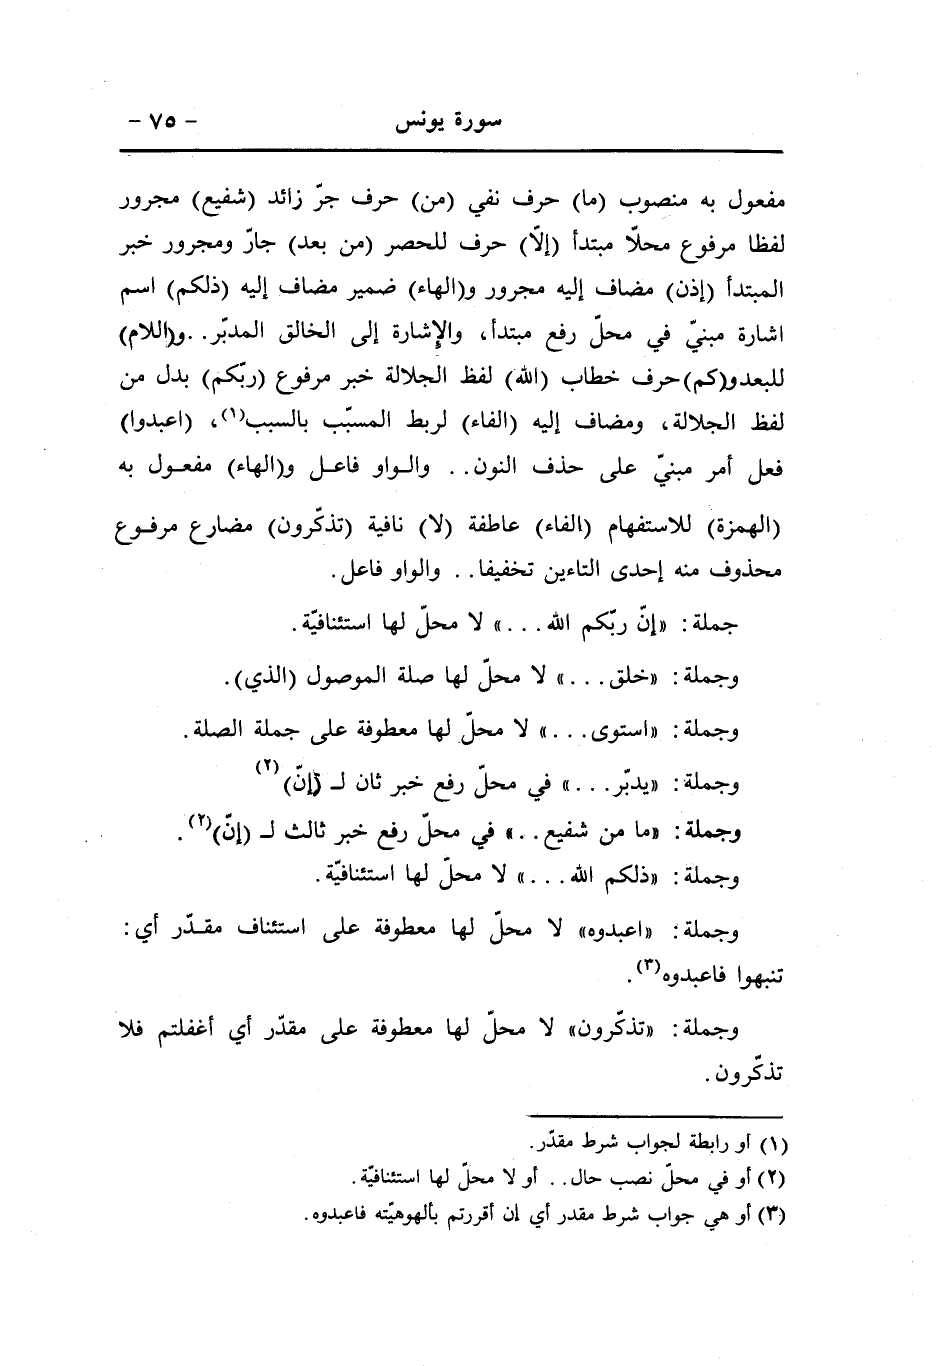 سورة يونس - ٧٥ -
مفعول به منصوب (ما) حرف نفي (من) حرف جرّ زائد (شفيع) مجرور
لفظا مرفوع محلّا مبتدأ (إلّا) حرف للحصر (من بعد) جارّ ومجرور خبر
المبتدأ (إذن) مضاف إليه مجرور و(الهاء) ضمير مضاف إليه (ذلكم) اسم
اشارة مبنيّ في محلّ رفع مبتدأ، والإشارة إلى الخالق المدبّر. .و(اللام)
للبعدو(كم)حرف خطاب (الله) لفظ الجلالة خبر مرفوع (ربّكم) بدل من
لفظ الجلالة، ومضاف إليه (الفاء) لربط المسبّب بالسبب(١)، (اعبدوا)
فعل أمر مبنيّ على حذف النون. . والواو فاعل و(الهاء) مفعول به
(الهمزة) للاستفهام (الفاء) عاطفة (لا) نافية (تذكّرون) مضارع مرفوع
محذوف منه إحدى التاءين تخفيفا. . والواو فاعل.
جملة: «إنّ ربّكم الله. . .» لا محلّ لها استئنافيّة.
وجملة: «خلق. . .» لا محلّ لها صلة الموصول (الذي).
وجملة: «استوى. . .» لا محلّ لها معطوفة على جملة الصلة.
وجملة: «يدبّر. . .» في محلّ رفع خبر ثان لـ (إنّ)(٢)
وجملة: «ما من شفيع. .» في محلّ رفع خبر ثالث لـ (إنّ)(٢).
وجملة: «ذلكم الله. . .» لا محلّ لها استئنافيّة.
وجملة: «اعبدوه» لا محلّ لها معطوفة على استئناف مقدّر أي:
تنبهوا فاعبدوه(٣).
وجملة: «تذكّرون» لا محلّ لها معطوفة على مقدّر أي أغفلتم فلا
تذكّرون.
(١) أو رابطة لجواب شرط مقدّر.
(٢) أو في محلّ نصب حال. . أو لا محلّ لها استئنافيّة.
(٣) أو هي جواب شرط مقدر أي ان أقررتم بألهوهيّته فاعبدوه.